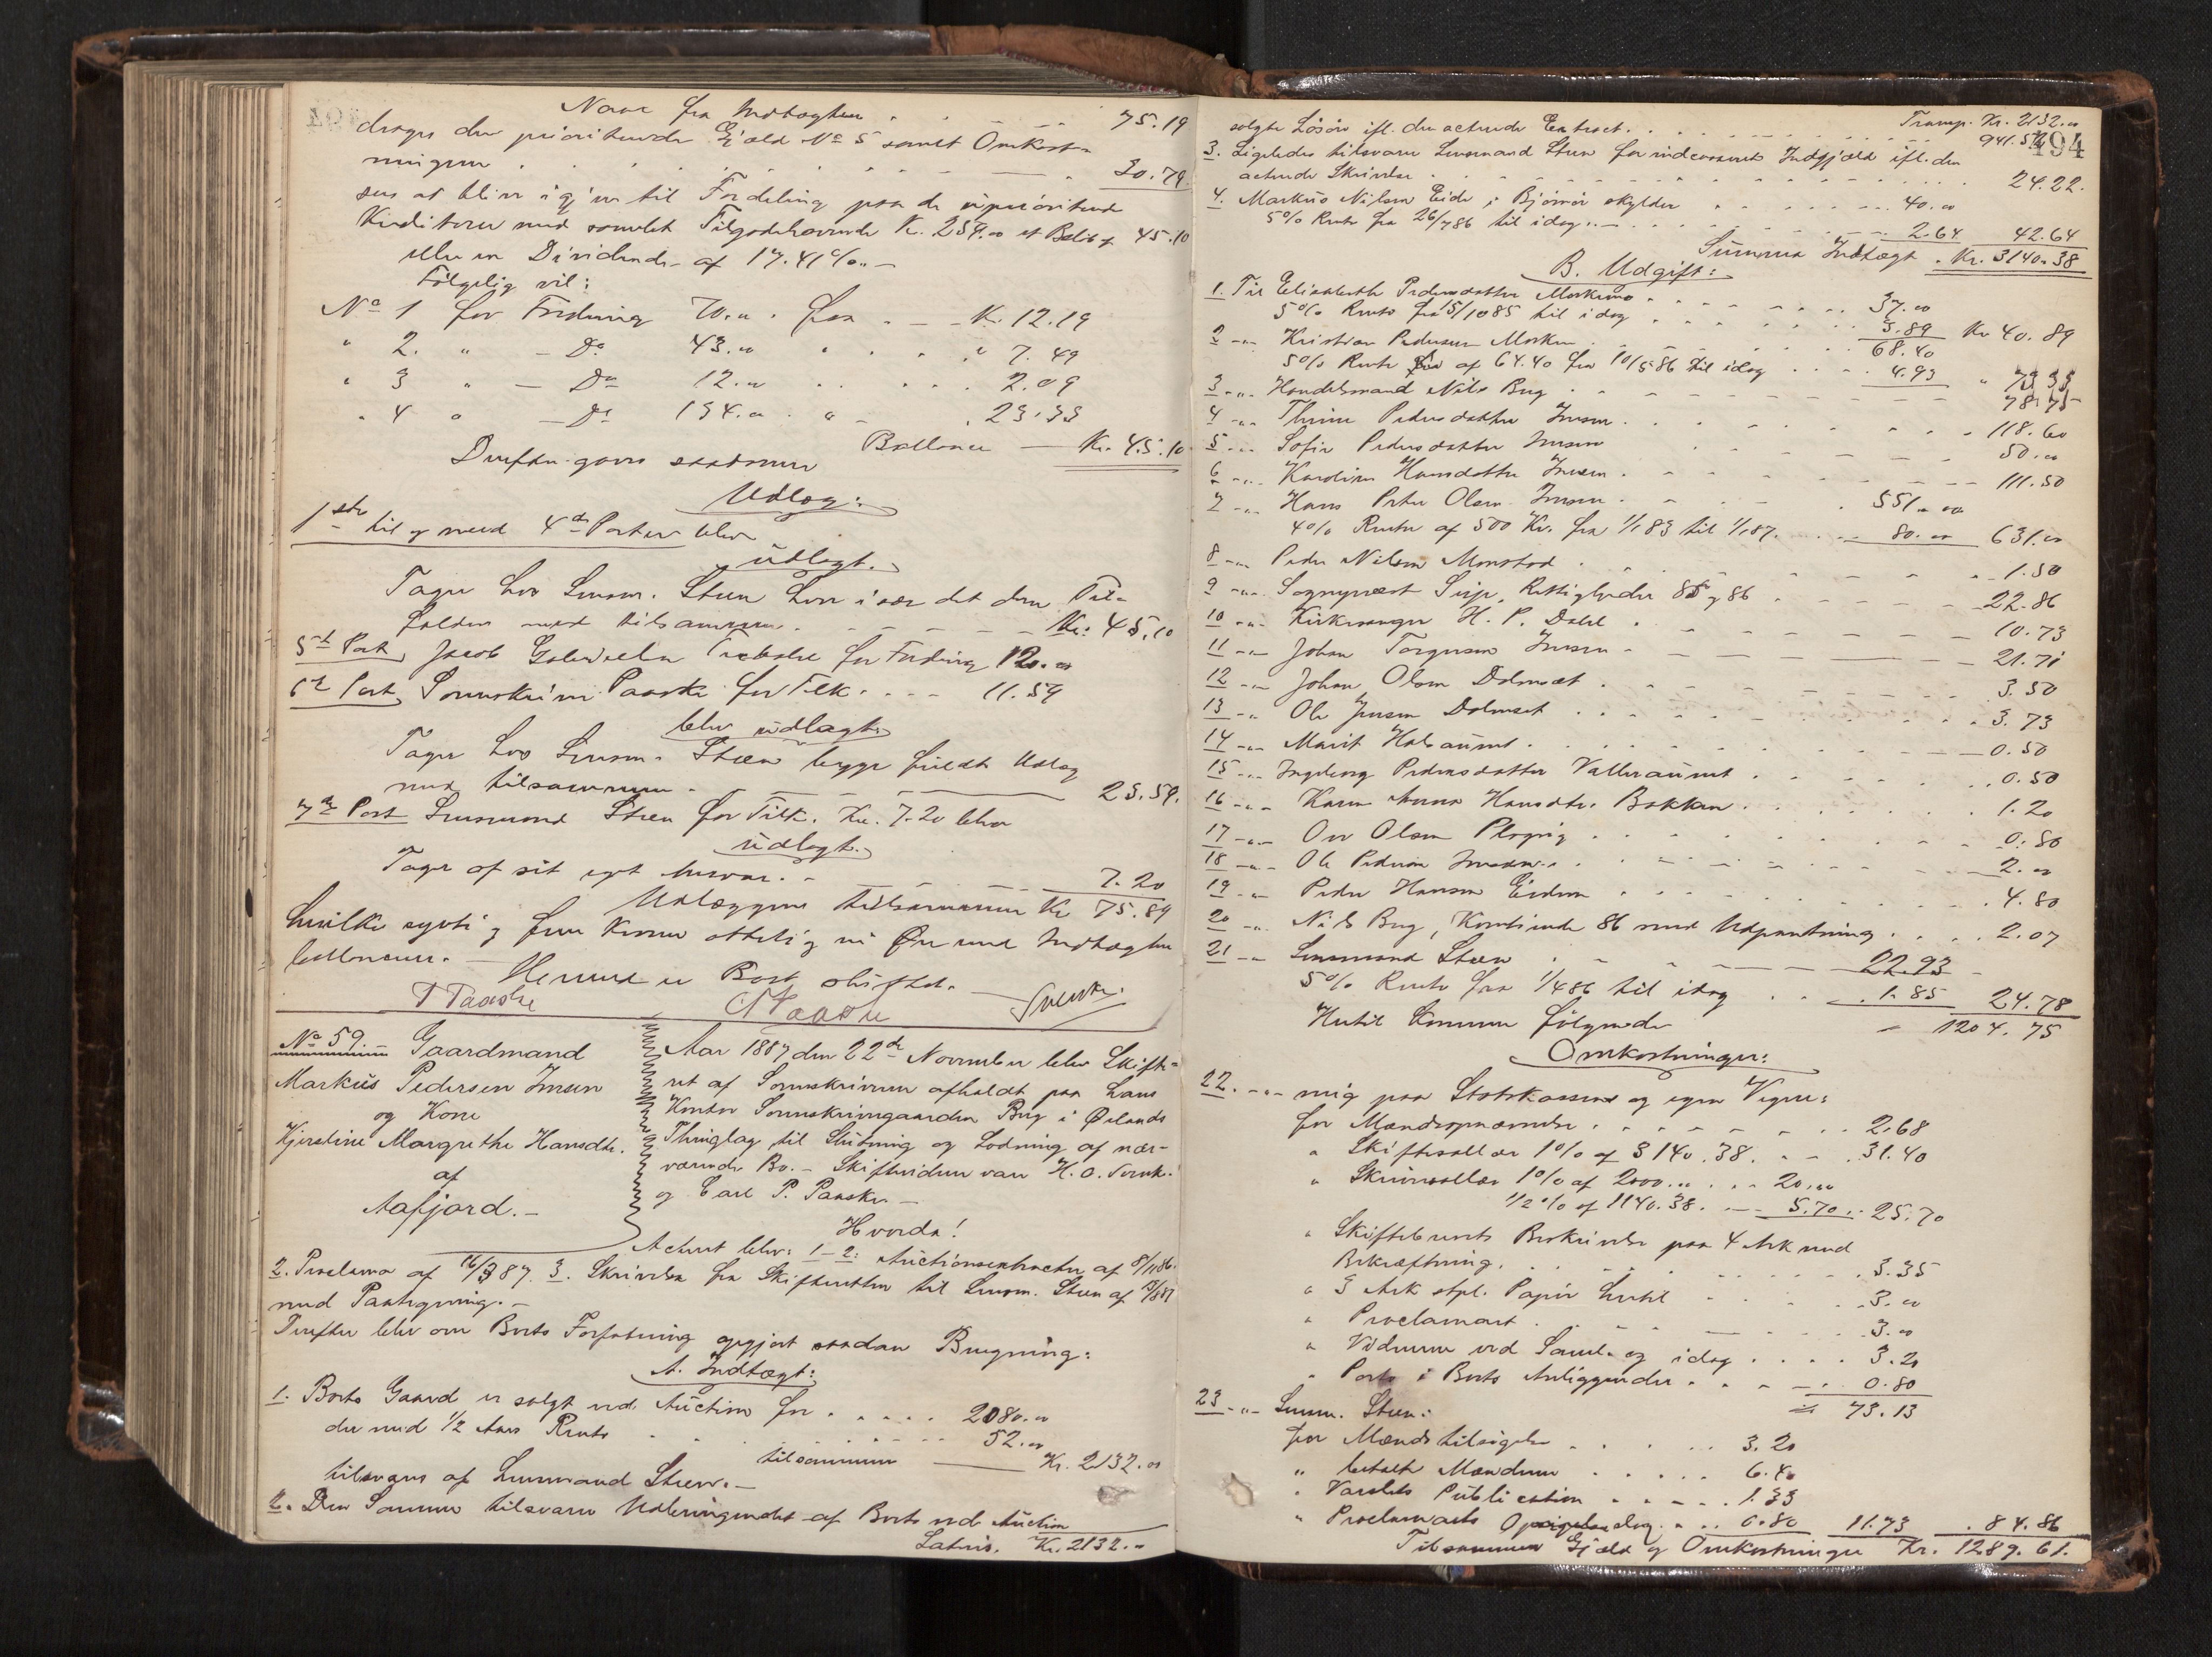 Naar fra Indtægten . . . 75.19
drages den prioriterede Gjæld No 5 samt Omkost-
ningerne . . . 30.79.
sees at blive igjen til Fordeling paa de uprioriterede
Kreditorer med samlet Tilgodehavende K. 259.00 et Beløb af 45.10
eller en Dividende af 17.41%.-
Følgelig vil:
No 1 for Fordring 70.00 faa - - K. 12.19
" 2. " - Do 43.00 " . . " 7.49
" 3 " - Do 12.00 . . . . 2.09
" 4 " - Do 134.00 . " - . 23.33
Ballance - Kr. 45.10
Derefter gaves saadanne
Udlæg:
1ste til og med 4de Poster blev
udlagt.
Tages hos Lensm. Steen hver især det dem Til-
faldne med tilsammen. - - Kr. 45.10
5te Post, Jacob Fordring 12.00
6te Post, Sorenskriver Paaske for Tilk. . . - 11.59
blev udlagt
Tages hos Lensm. Steen begge fuldt Udlæg
med tilsammen - 23.59.
7de Post Lensmand Steen for Tilk. Kr. 7.20 blev
udlagt.
Tages af sit eget Ansvar. - 7.20
Udlæggene tilsammen Kr 75.89
hvilke sytti og fem Kroner otteti og ni Øre med Indtægten
ballancerer. -
Hermed er Boet sluttet. -
T Paaske C Paaske
No 59. Gaardmand
Markus Pedersen Imsen
og Kone
Kjerstine Margrethe Hansdtr.
af
Aafjord. -
Aar 1887 den 22de November blev Skifte-
ret af Sorenskriveren afholdt paa hans
Kontor Sorenskrivergaarden Brug i Ørlands
Thinglag til Slutning og Lodning af nær-
værende Bo. - Skiftevidner var H. O.
og Carl P. Paaske. -
Hvorda!
Acteret blev: 1-2: Auctionsextracter af 8/1186.
2. Proclama af 16/387. 3. Skrivelse fra Skifteretten til Lensm. Steen af
med Paategning. -
Derefter blev om Boets Forfatning opgjort saadan Beregning:
A. Indtægt:
1. Boets Gaard er solgt ved Auction for . . . . 2080.00
der med 1/2 Aars Rente . . . . 52.00
tilsammen - Kr. 2132.00
tilsvares af Lensmand Steen. -
2. Den Samme tilsvarer Udbringendet af Boets ved Auction
Lateris. Kr. 2132.-
Transp. Kr. 2132.00
194
solgte Løsøre ifl. den acterede Extract. . . . 941.52
3. Ligeledes tilsvarer Lensmand Steen for indcasseret Indgjæld ifl. den
acterede Skrivelse . . . 24.22.
4. Markus Nilsen Eide i Bjørnør skylder . . . 40.00
5% Rente fra 26/786 til idag. - . . 2.64 42.64
Summa Indtægt . Kr. 3140.38
B. Udgift:
1. Til Elisabeth Pedersdatter . . . . 37.00
5% Rente fra 15/1085 til idag . . . 3.89 Kr 40.89
2 -"- Kristian Pedersen . . . 68.40
5% Rente af 64.40 fra 10/586 til idag . . . 4.93 " 73 33
3 -"- Handelsmand Nils Brug - - 78.75
4 -"- Thrine Pedersdatter Imsen . . . 118.60
5 -"- Sofie Pedersdatter Imsen . . 50.00
6 -"- Hansdatter Imsen . - - 111.50
7 -"- Hans Peter Olsen Imsen . . . 551.00
4% Rente af 500 Kr. fra 1/183 til 1/187. . . 80.00 631.00
8 -"- Peder Nilsen Monstad . . . 1.50
9 -"- Sogneprest Rettigheder 85 og 86 . . 22.86
10 -"- Kirkesanger H. P. Dahl . . 10.73
11 -"- Johan Torgersen Imsen - - 21.71
12 -"- Johan Olsen Dolmset . . . 3.50
13 -"- Ole Jensen Dolmset . . . 3.73
14 -"- Marit Halsaunet . . . 0.50
15 -"- Ingeborg Pedersdatter Valleraunet . . . 0.50
16 -"- Karen Anna Hansdtr. Bakken . . . 1.20
17 -"- Ove Olsen . . . 0.80
18 -"- Ole Pedersen . . . 2.00
19 -"- Peder Hansen . . . 4.80
20 -"- Nils Brug, 86 med Udpantning . . . 2.07
21 -"- Lensmand Steen . - - 22.93
5% Rente fra 1/486 til idag . . 1.85 24.78
Hertil komme følgende " 1204.75
Omkostninger:
22. -"- mig paa Statskassens og egne Vegne:
for Mændsopnævnelse . . . 2.68
" Skiftesallær 1% af 3140.38. - - . 31.40
" Skriversallær 1% af 2000.00 . . . 20.00
1/2% af 1140.38. - - 5.70 . . 25.70
" Skiftebrevets Beskrivelse paa 4 Ark med
Bekræftning. . . . 3.35
" 3 Ark stpl. Papir hertil . . . 3.00
" Proclamaet . . . 3.00
" Vidnerne ved Saml. og idag . . . . 3.20
" Porto i Boets Anliggender . . . 0.80
73.13
23 -"- Lensm. Steen:
for Mænds tilsigelse . . . 3.20
" betalt Mændene . . . 6.40
" Varslets Publication . . . 1.33
" Proclamaets . . 0.80 11.73 . 84.86
Tilsammen Gjæld og Omkostninger Kr. 1289.61.